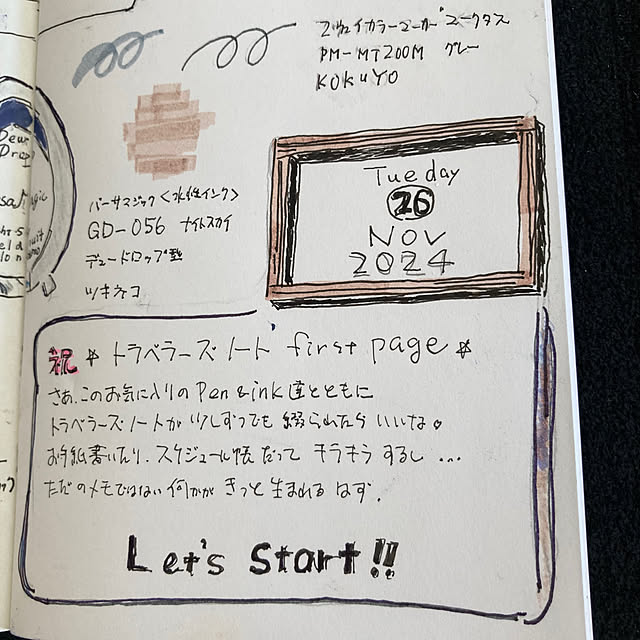 2ウェイカラーマーカー マークタス
PM-MT200M グレー
KOKUYO
Tue day
26
NOV
2024
バーサマジック<水性インク>
GD-056 ナイトスカイ
デュードロップ型
ツキネコ
Dew
Drop
祝 * トラベラーズノート first page *
さぁ、このお気に入りの Pen & ink 達とともに
トラベラーズノートが少しずつでも 綴られたら いいな。
お手紙書いたり、スケジュール帳だって キラキラ するし ...
ただのメモではない 何かが きっと 生まれる はず.
Let's Start!!